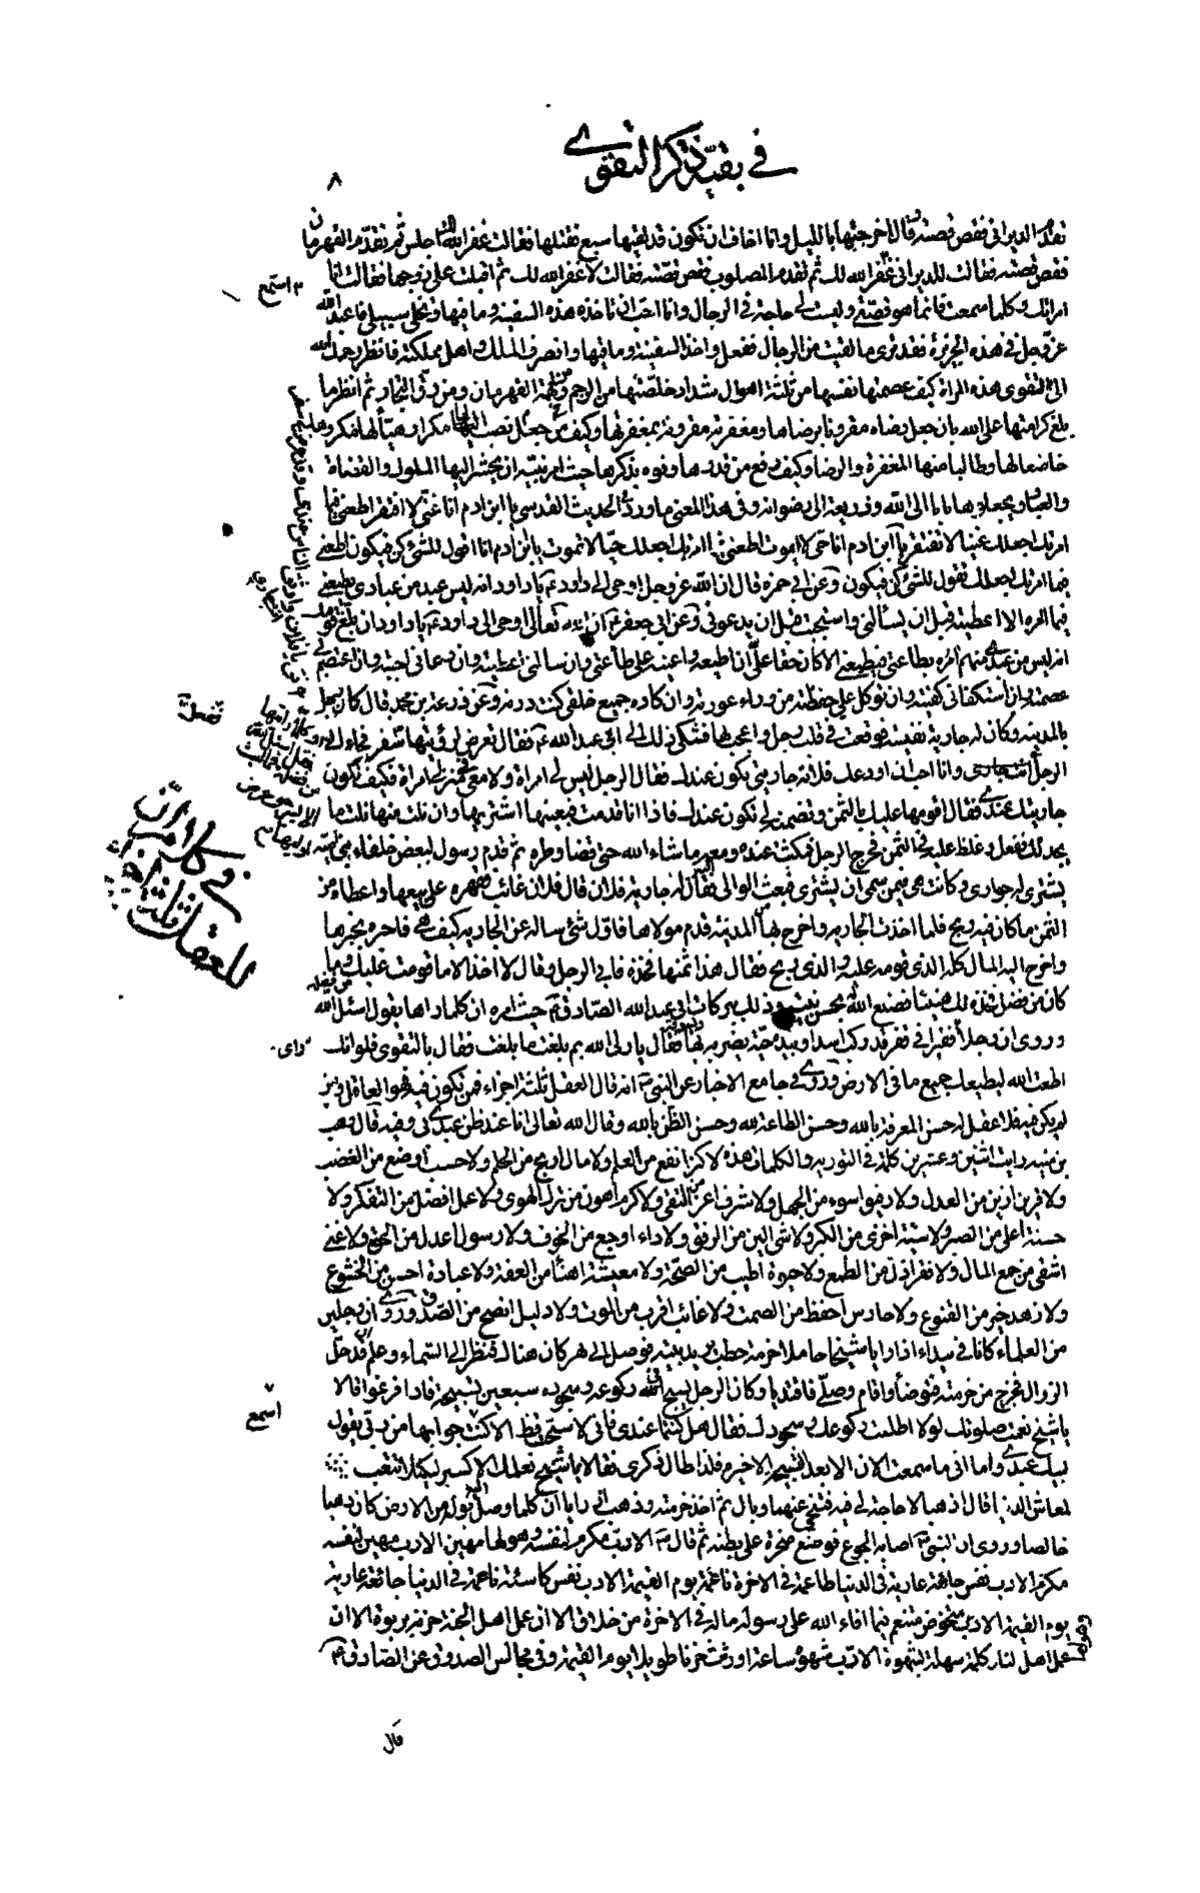 في بقية ذكر التقوى
٨
تقدم الديراني فقص قصته وقال اخرجتها بالليل وانا اخاف ان تكون قد لقيها سبع فقتلها فقالت غفر الله لك اجلس ثم تقدم القهرمان
فقص قصته فقالت للديراني غفر الله لك ثم تقدم المصلوب فقص قصته فقالت لا غفر الله لك ثم اقبلت على زوجها فقالت انا
امراتك وكلما سمعت فانما هو قصتي وليست لي حاجة في الرجال وانا احب ان تاخذ هذه السفينة وما فيها وتخلي سبيلي فاعبد الله
عز وجل في هذه الجزيرة فقد ترى ما لقيت من الرجال ففعل واخذ السفينة وما فيها وانصرف الملك واهل مملكته فانظر رحمك الله
الى التقوى هذه المراة كيف عصمتها نفسها من ثلثة اهوال شداد خلصتها من الرجم وتهمة القهرمان ومن رق التجار ثم انظر ما
بلغ كرامتها على الله بان جعل رضاه مقرونا برضاها ومغفرته مقرونة بمغفرتها وكيف جعل من نصب لها مكرا وهيأ لها مكروها
خاضعا لها وطالبا منها المغفرة والرضا وكيف رفع من قدرها ونوه بذكرها حيث امر نبيه ان يحشر اليها الملوك والقضاة
والعباد ويجعلوها بابا الى الله وذريعة الى رضوانه وفي هذا المعنى ما ورد في الحديث القدسي يا ابن ادم انا غني لا افتقر اطعني فيما
امرتك اجعلك غنيا لا تفتقر يا ابن ادم انا حي لا اموت اطعني فيما امرتك اجعلك حيا لا تموت يا ابن ادم انا اقول للشئ كن فيكون اطعني
فيما امرتك اجعلك تقول للشئ كن فيكون وعن ابي حمزة قال ان الله عز وجل اوحى الى داود ع يا داود انه ليس عبد من عبادي يطيعني
فيما امره الا اعطيته قبل ان يسألني واستجيب قبل ان يدعوني وعن ابي جعفر ع ان الله تعالى اوحى الى داود ع يا داود ان بلغ قومك
انه ليس من عبد منهم امره بطاعتي فيطيعني الا كان حقا علي ان اطيعه واعينه على طاعتي وان سالني اعطيته وان دعاني اجبته وان اعتصم
عصمته وان استكفاني كفيته وان توكل علي حفظته من وراء عورته وان كاده جميع خلقي كنت دونه وعن زرعة بن محمد قال كان رجل
بالمدينة وكان له جارية نفيسة فوقعت في قلب رجل واعجب بها فشكى ذلك الى ابي عبد الله ع فقال تعرض لرؤيتها
جاريتك عندي فقال اقومها عليك بالثمن وتضمنه لي تكون عندك فاذا انا قدمت فبعينها اشتريها وان نلت منها نلت ما
يحل لك ففعل وغلظ عليه في الثمن فخرج الرجل فمكثت عنده ومعه ما شاء الله حتى قضا وطره ثم قدم رسول لبعض خلفاء بني امية
يشتري له جواري وكانت هي فيمن سمي ان يشترى فبعث الوالي اليه فقال له جارية فلان قال فلان غائب فقهره على بيعها واعطاه من
الثمن ما كان فيه ربح فلما اخذت الجارية واخرج بها من المدينة قدم مولاها فاول شئ ساله عن الجارية كيف هي فاخبره بخبرها
واخرج اليه المال كله الذي قومه عليه والذي ربح فقال هذا ثمنها فخذه فابى الرجل وقال لا اخذ الا ما قومت عليك وما
كان من فضل فخذه لك هنيئا فصنع الله له بحسن نيته
وروى ان رجلا فقيرا في قفر قد ركب اسدا وبيده حية يضربه بها فقال يا ولي الله بم بلغت ما بلغت فقال بالتقوى فلو انك
اطعت الله ليطيعك جميع ما في الارض وروى في جامع الاخبار عن النبي ص انه قال العقل ثلثة اجزاء فمن تكون فيه فهو العاقل ومن
لم يكن فيه فلا عقل له حسن المعرفة بالله وحسن الطاعة لله وحسن الظن بالله وقال الله تعالى انا عند ظن عبدي بي وفيه قال وهب
بن منبه رايت اثنين وعشرين كلمة في التورية والكلمات هذه لا كنز انفع من العلم ولا مال اربح من الحلم ولا حسب اوضع من الغضب
ولا قرين ازين من العدل ولا رفيق اسوء من الجهل ولا شرف اعز من التقى ولا كرم اهون من ترك الهوى ولا عمل افضل من التفكر ولا
حسنة اعلى من الصبر ولا سيئة اخزى من الكبر ولا شئ الين من الرفق ولا داء اوجع من الخوف ولا رسول اعدل من الحق ولا غنى
اشقى من جمع المال ولا فقر اذل من الطمع ولا حيوة اطيب من الصحة ولا معيشة اهنأ من العفة ولا عبادة احسن من الخشوع
ولا زهد خير من القنوع ولا حارس احفظ من الصمت ولا غائب اقرب من الموت ولا دليل انصح من الصدق وروى ان رجلين
من العلماء كانا في بيداء اذ رايا شيخا حاملا حزمة حطب يريد بيته فوصل الى نهر كان هناك فنظر الى السماء وعلم ان قد حل
الزوال فخرج من حزمته فتوضأ واقام وصلى فاقتديا وكان الرجل يسبح الله في ركوعه وسجوده سبعين تسبيحة فاذا فرغوا قالا
يا شيخ نعمت صلوتك لولا اطلت ركوعك وسجودك فقال
لبيك عبدي واما اني ما سمعت الان الا بعد التسبيح الاخيرة فلذا طال ذكري فقالا يا شيخ نعلمك الاكسير لكيلا تتعب
لمعاش الدنيا قال اذهبا لا حاجة لي فيه فتنحى عنهما وبال ثم اخذ حزمته وذهب فرايا ان كلما وصل اليه بوله من الارض كان ذهبا
خالصا وروى ان النبي ص اصابه الجوع فوضع صخرة على بطنه ثم قال ص الا رب مكرم لنفسه وهو لها مهين الا رب مهين لنفسه
مكرم الا رب نفس جائعة عارية في الدنيا طاعمة في الاخرة ناعمة يوم القيمة الا رب نفس كاسية ناعمة في الدنيا جائعة عارية
يوم القيمة الا رب متخوض متنعم فيما افاء الله على رسوله ماله في الاخرة من خلاق الا ان عمل اهل الجنة حزنة بربوة الا ان
عمل اهل النار كلمة سهلة بشهوة الا رب شهوة ساعة اورثت حزنا طويلا يوم القيمة وفي مجالس الصدوق عن الصادق ع
استمع
تفعل
في كلام ان
راى
اسمع
قال